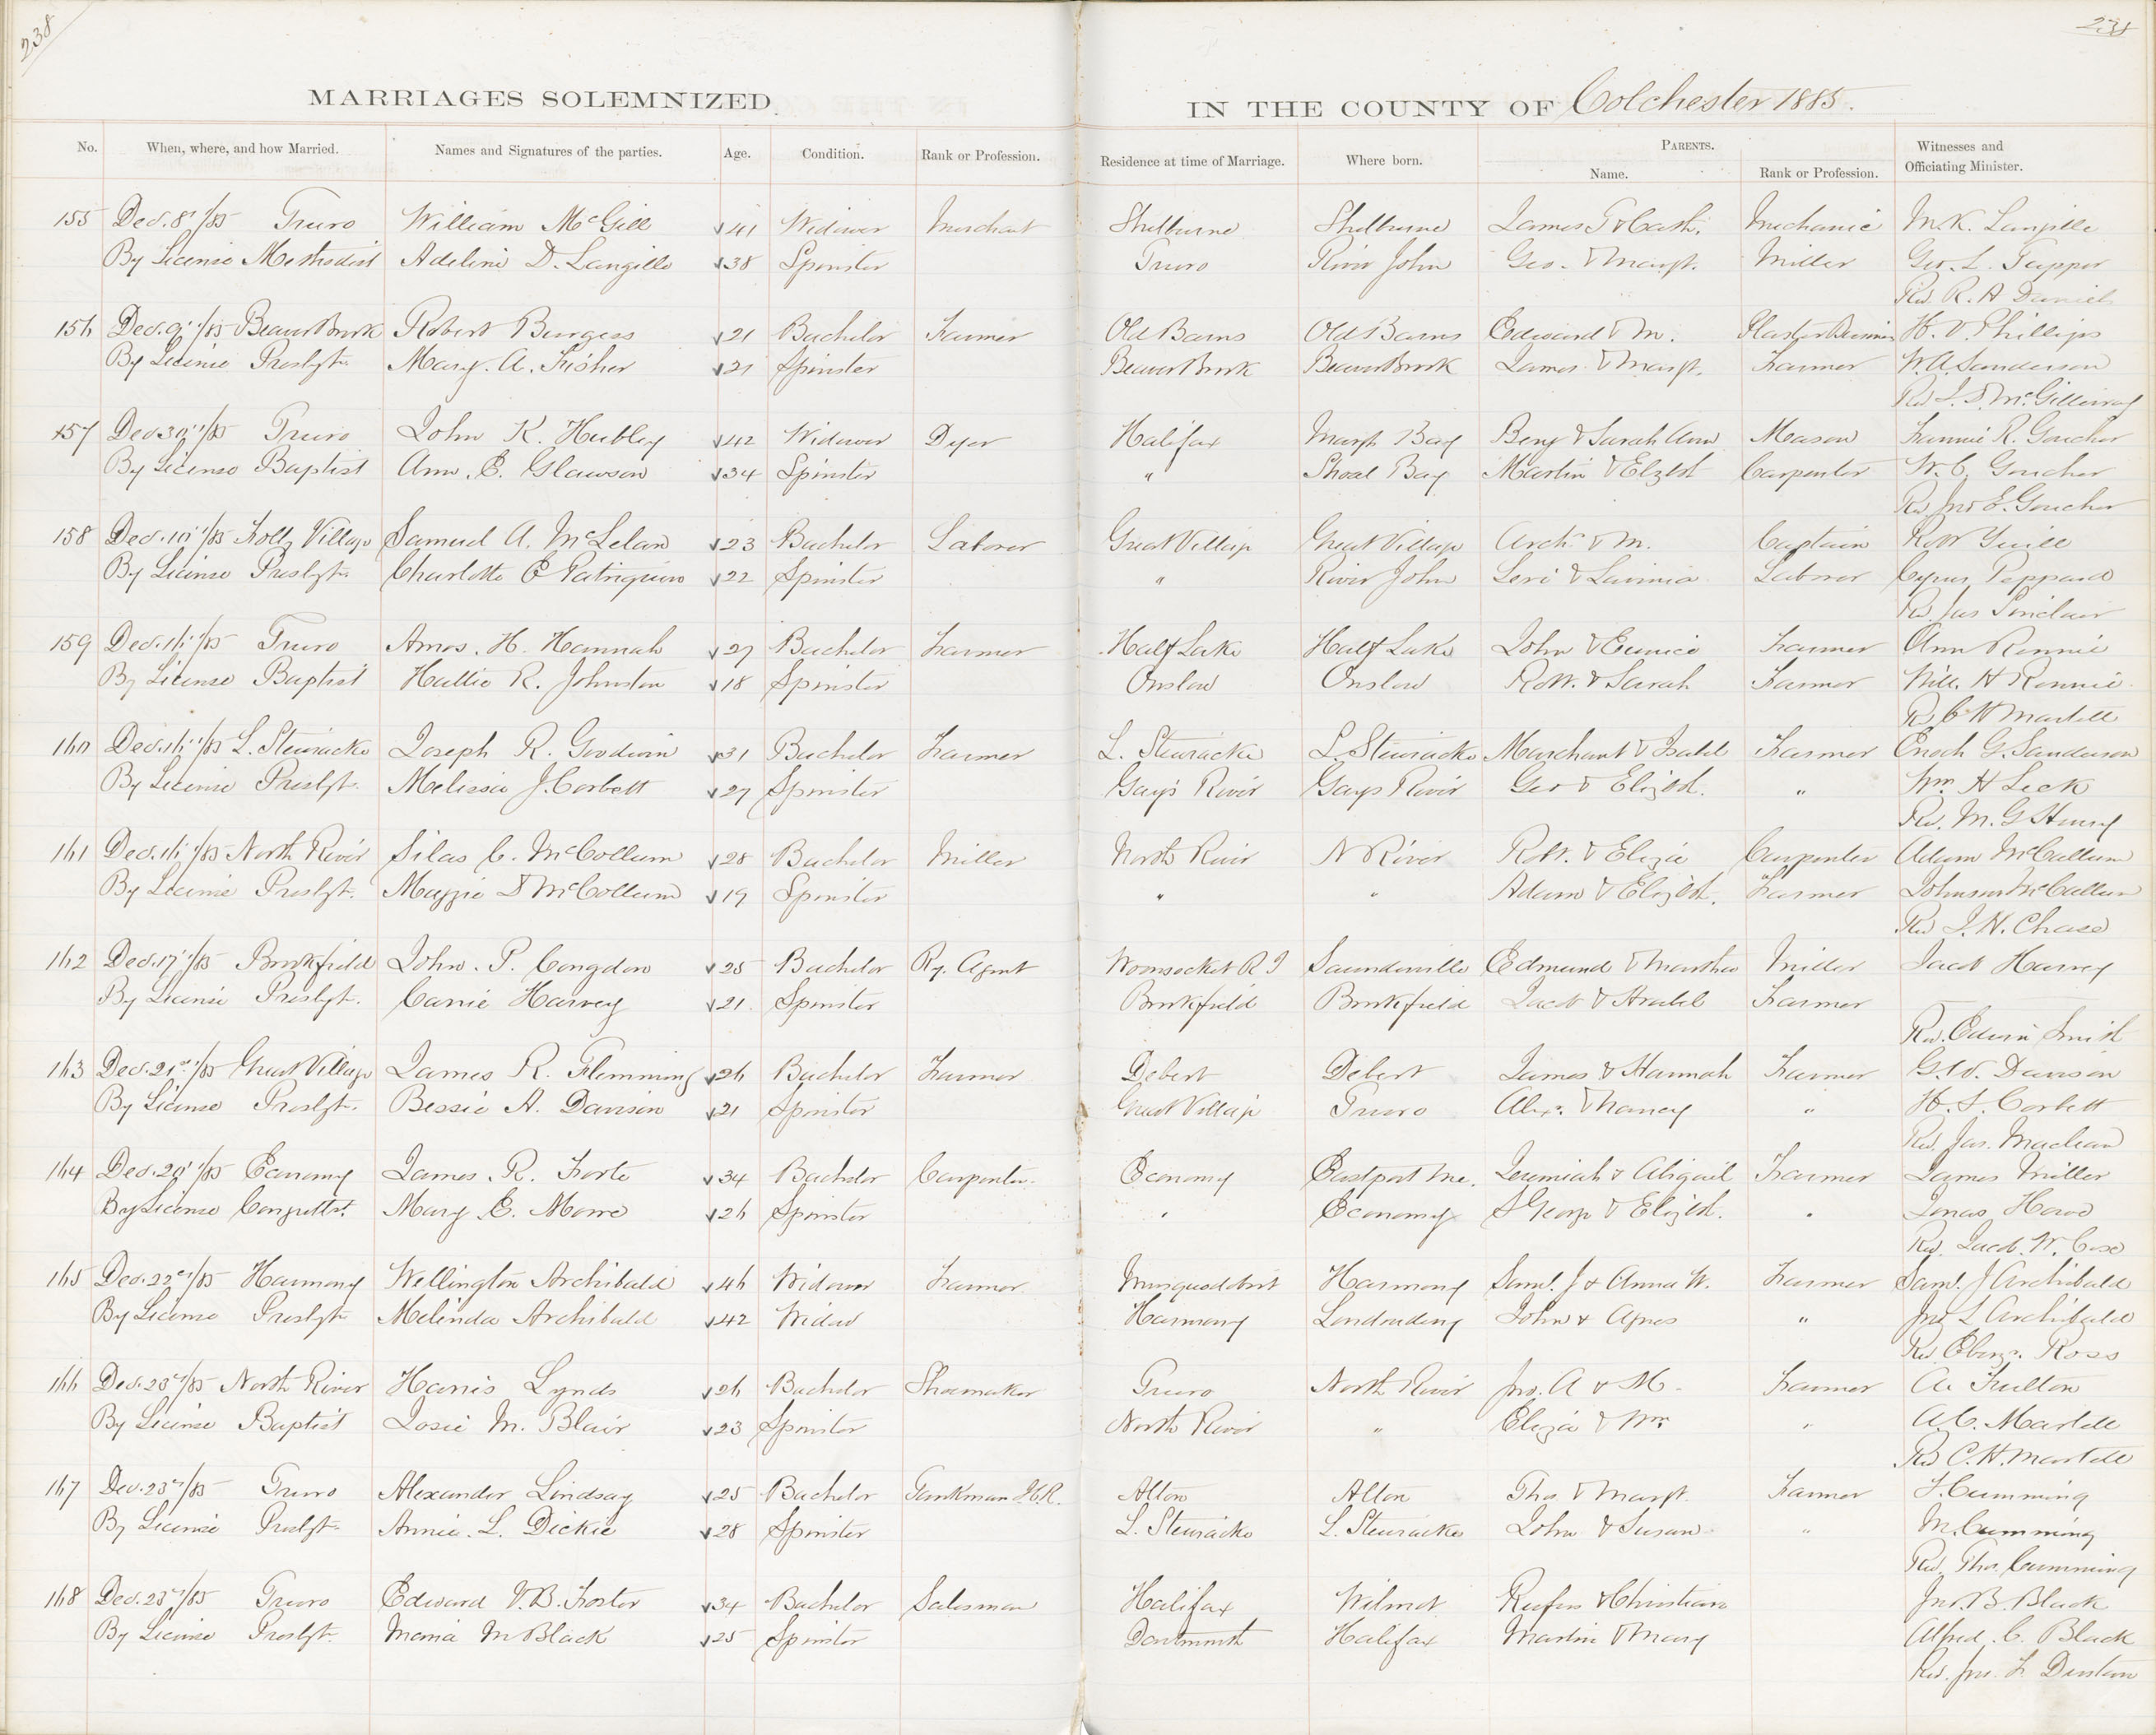 238
MARRIAGES SOLEMNIZED
No. When, where, and how Married. Names and Signatures of the parties. Age. Condition. Rank or Profession.
155 Dec. 8th/85 Truro William McGill 41 Widower Merchant
By License Methodist Adeline D. Langille 38 Spinster
156 Dec. 9th/85 Beaver Brook Robert Burgess 21 Bachelor Farmer
By License Presbyt. Mary. A. Fisher 21 Spinster
157 Truro John K. Hubley 42 Widower Dyer
By License Baptist Ann. E. Glawson 34 Spinster
158 Dec. 10th/85 Folly Village Samuel A. McLelan 23 Bachelor Laborer
By License Presbyt. Charlotte E Patriquin 22 Spinster
159 Dec. 16th/85 Truro Amos. H. Hannah 27 Bachelor Farmer
By License Baptist Hattie R. Johnston 18 Spinster
160 Dec. 16th/85 L. Stewiacke Joseph R. Goodwin 31 Bachelor Farmer
By License Presbyt. Melissa J. Corbett 27 Spinster
161 Dec. 16th/85 North River Silas C. McCollum 28 Bachelor Miller
By License Presbyt. Maggie McCollum 19 Spinster
162 Dec. 17th/85 Brookfield John. P. Congdon 25 Bachelor Ry. Agent
By License Presbyt. Carrie Harvey 21 Spinster
163 Dec. 21st/85 Great Village James R. Flemming 26 Bachelor Farmer
By License Presbyt. Bessie A. Davison 21 Spinster
164 Economy James. R. Forte 34 Bachelor Carpenter
By License Mary E. Morre 26 Spinster
165 Dec. 22nd/85 Harmony Wellington Archibald 46 Widower Farmer
By License Presbyt. Melinda Archibald 42 Widow
166 Dec. 23rd/85 North River Harris Lynds 26 Bachelor Shoemaker
By License Baptist Josie M. Blair 23 Spinster
167 Dec. 23rd/85 Truro Alexander Lindsay 25 Bachelor Tankman
By License Presbyt. Annie. L. Dickie 28 Spinster
168 Dec. 23rd/85 Truro Edward V. B. Foster 34 Bachelor Salesman
By License Presbyt. Maria M Black 25 Spinster
IN THE COUNTY OF Colchester 1885.
PARENTS.
Residence at time of Marriage. Where born. Name. Rank or Profession. Witnesses and Officiating Minister.
Shelburne Shelburne James & Cath. Mechanic M. K. Langille
Truro River John Geo. & Margt. Miller Geo. L. Tupper
Rev R. A Daniel
Old Barns Old Barns Edward & M. H. V. Phillips
Beaver Brook Beaver Brook James & Margt. Farmer W. A Sanderson
Halifax Margts Bay Benj & Sarah Ann Meason Fannie R. Goucher
" Shoal Bay Martin & Elzbth Carpenter W. C. Goucher
Rev Jno E. Goucher
Great Village Great Village Archd & M. Captain Robt Yuill
" River John Levi & Lavinia Laborer Cyrus Peppard
Rev Jas Sinclair
Half Lake Half Lake John & Eunice Farmer Ann Rennie
Onslow Onslow Robt. & Sarah Farmer Will. H Rennie
Rev C H Martell
L. Stewiacke L. Stewiacke Marchant & Isabel Farmer Enoch G. Sanderson
Gays River Gays River Geo & Elizbth. " Wm. H Leck
Rev. M. G Henry
North River N River Robt. & Eliza Carpenter Adam McCallum
" " Adam & Elizbth. Farmer Johnson McCallum
Rev J. H. Chase
Woonsocket R I Saundersville Edmund & Martha Miller Jacob Harvey
Brookfield Brookfield Jacob & Farmer
Rev. Edwin Smith
Debert Debert James & Hannah Farmer G. W. Davison
Great Village Truro Alexr. & Nancy " H. S. Corbett
Rev Jas. Maclean
Economy Eastport Me. Jeremiah & Abigail Farmer James Miller
" Economy George & Elizbth. " Jonas
Rev. Jacob. W. Cox
Musquodobit Harmony Saml. J & Anna W. Farmer Saml. J Archibald
Harmony Londonderry John & Agnes " Jno L Archibald
Rev Ebenzr. Ross
Truro North River Jno. A & M. Farmer A. Fulton
North River " Eliza & Wm " A. C. Martell
Rev C. H. Martell
Alton Alton Tho & Margt. Farmer J. Cumming
L. Stewiacke L. Stewiacke John & Susan " M. Cumming
Rev. Tho. Cumming
Halifax Wilmot Rufus & Christian Jno. B. Black
Dartmouth Halifax Martin & Mary Alfred. C. Black
Rev. Jno. F. Dustan